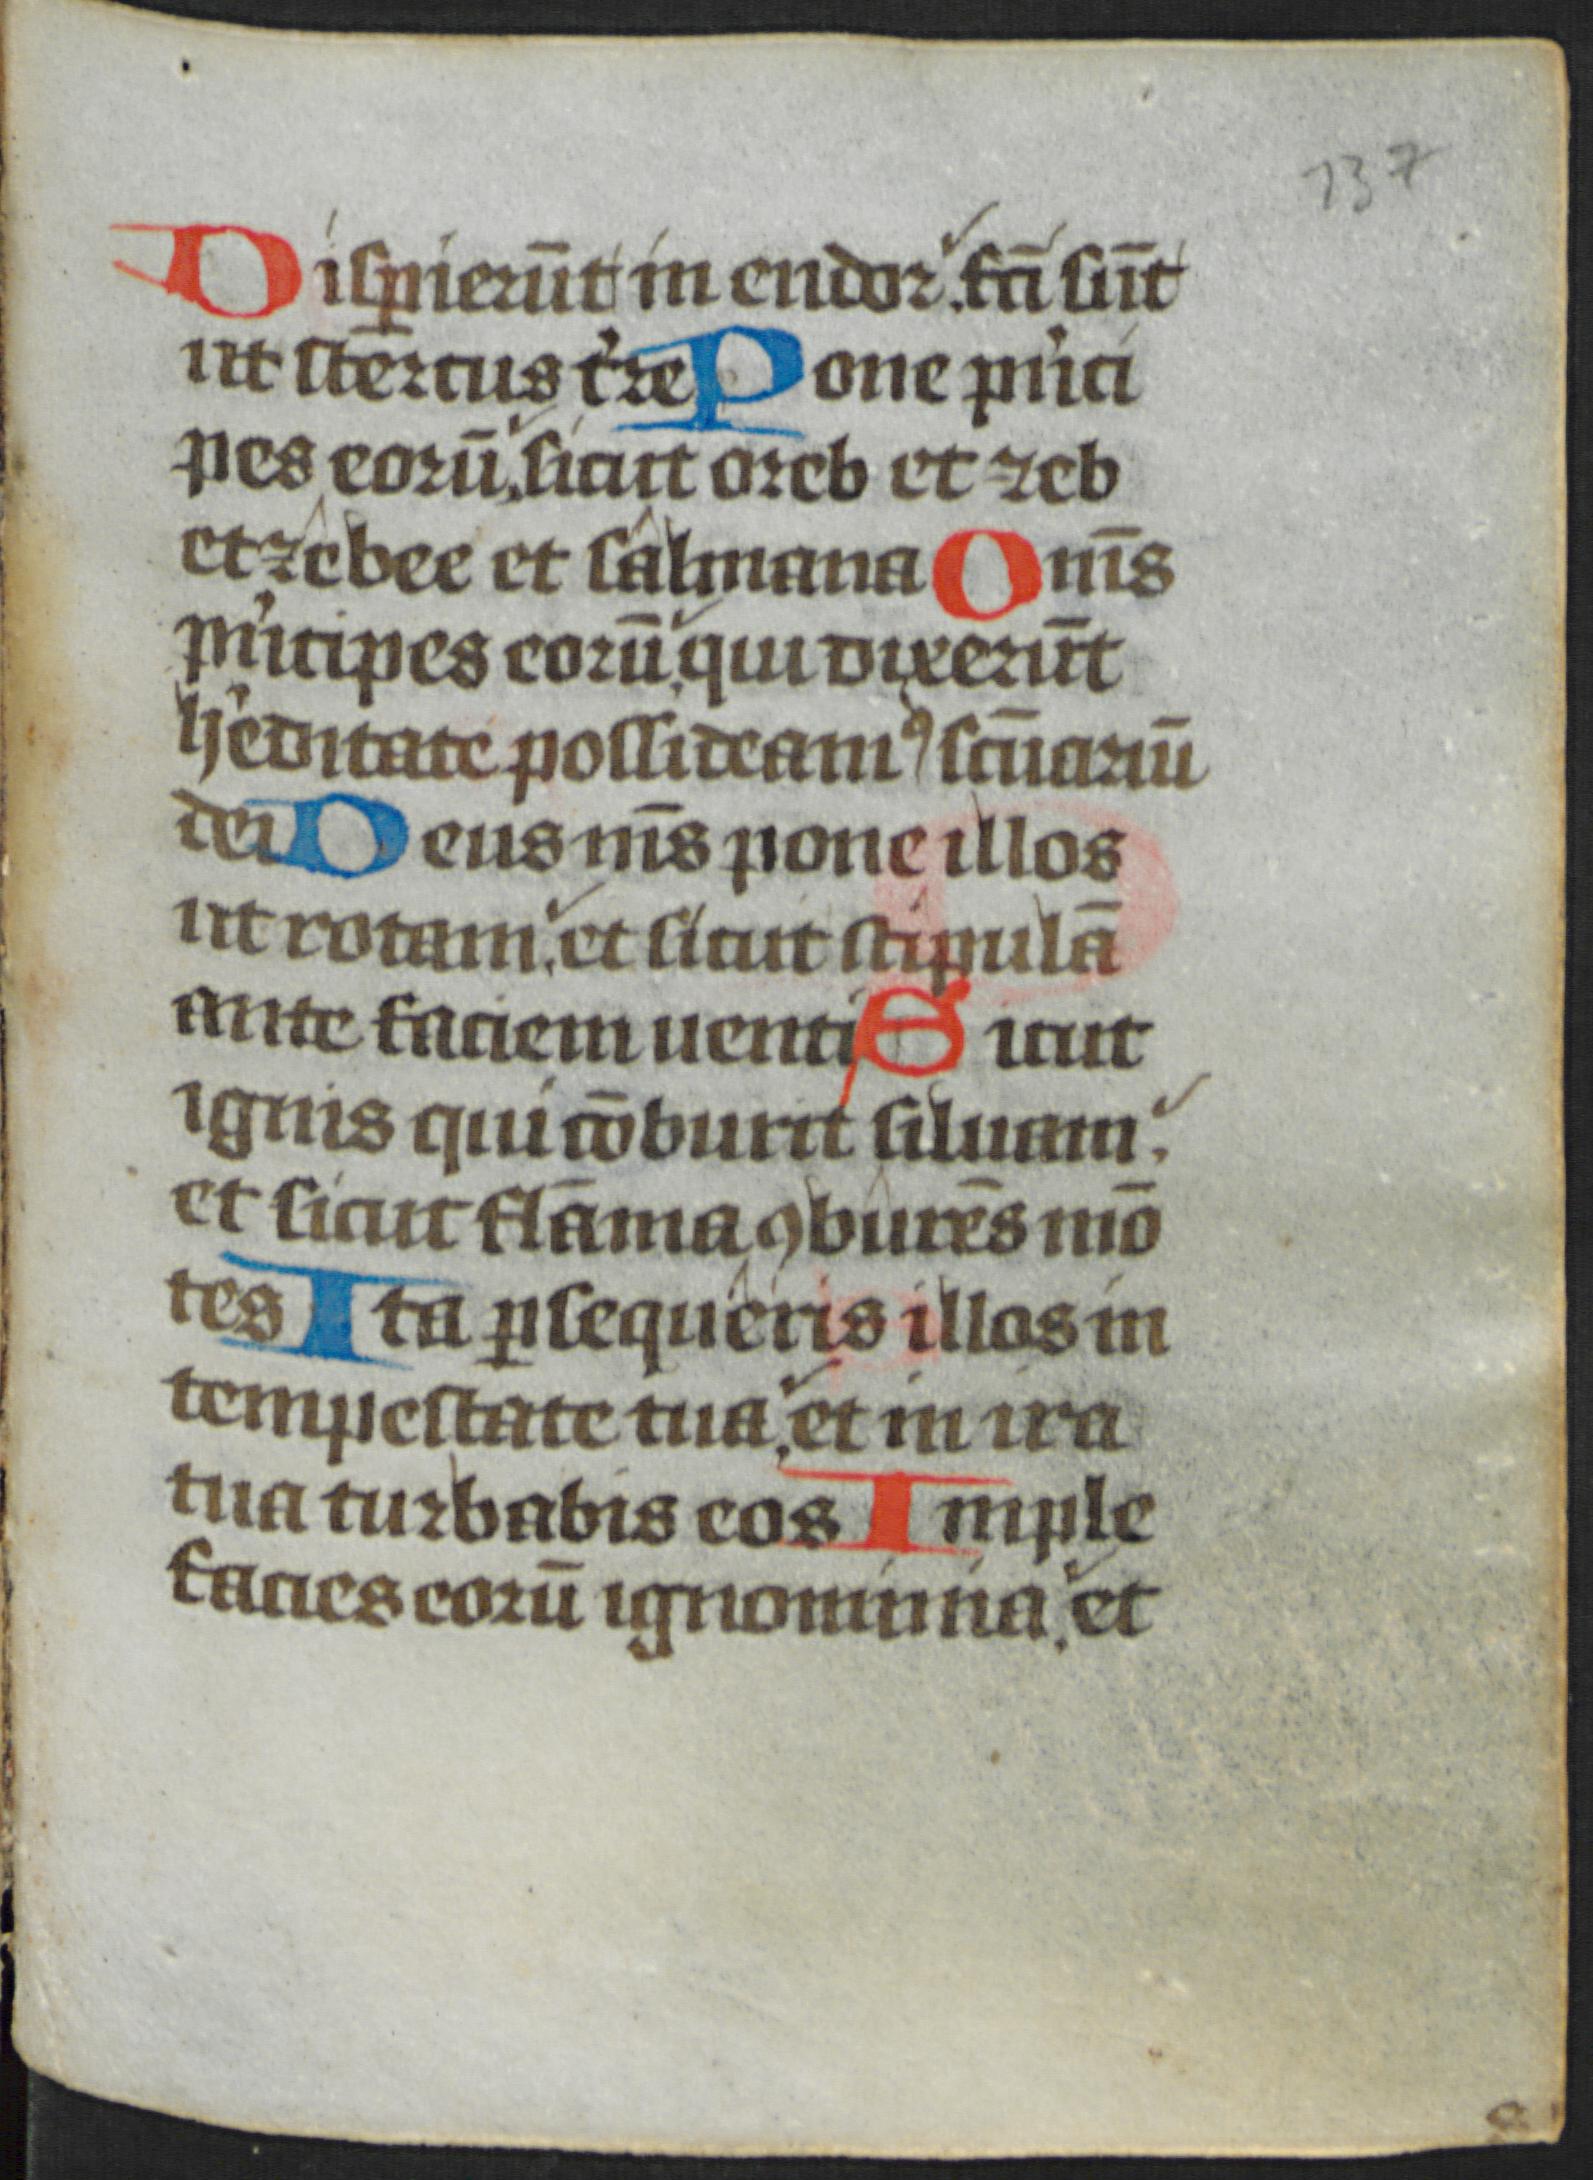 137
Disꝑierūt in endor. fcī sūt
ut stercus t̓re Pone pͥnci
pes eorū. sicut oreb et zeb
et zebee et salmana Om̄s
pͥncipes eorū. qui dixerūt
h̓editate possideamꝰ scūariū
dei Deus m̄s pone illos
ut rotam. et sicut stipulā
ante faciem uenti Sicut
ignis qui cōburit siluam.
et sicut flāma ꝯburēs mō
tes Ita ꝑsequeris illos in
tempestate tua. et in ira
tua turbabis eos Imple
facies eorū ignominia. et